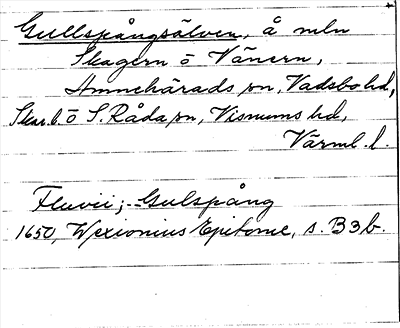 Gullspångsälven, å mln
Skagern o Vänern,
Amnehärads sn, Vadsbo hd,
Skar.l. o S. Råda sn, Visnums hd,
Värml. l.
Fluvii; - Gulspång
1650, Wexionius Epitome, s. B3b.